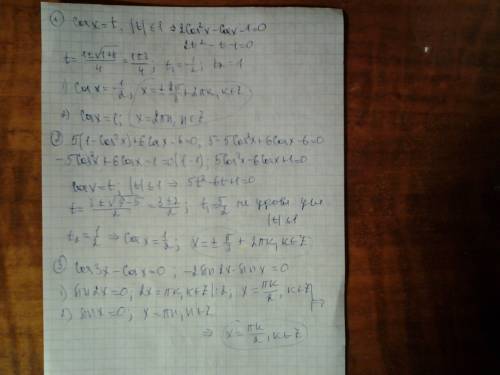 ① cosx=t, |t|≤1 ⇒ 2cos²x-cosx-1=0
2t²-t-1=0
t=(1±√1+8)/4=(1±3)/4; t₁=-1/2; t₂=1
1) cosx=-1/2; x=±2π/3+2πk, k∈Z
2) cosx=1; x=2πn, n∈Z
② 5(1-cos²x)+6cosx-6=0; 5-5cos²x+6cosx-6=0
-5cos²x+6cosx-1=0 |(-1); 5cos²x-6cosx+1=0
cosx=t; |t|≤1 ⇒ 5t²-6t+1=0
t₁ не удовл
|t|≤1
t₂=1/2 ⇒ cosx=1/2; x=±π/3+2πk, k∈Z
③ cos3x-cosx=0; -2sin2x·sinx=0
1) sin2x=0, 2x=πk, k∈Z |:2, x=πk/2, k∈Z
2) sinx=0; x=πn, n∈Z
⇒ x=πk/2, k∈Z